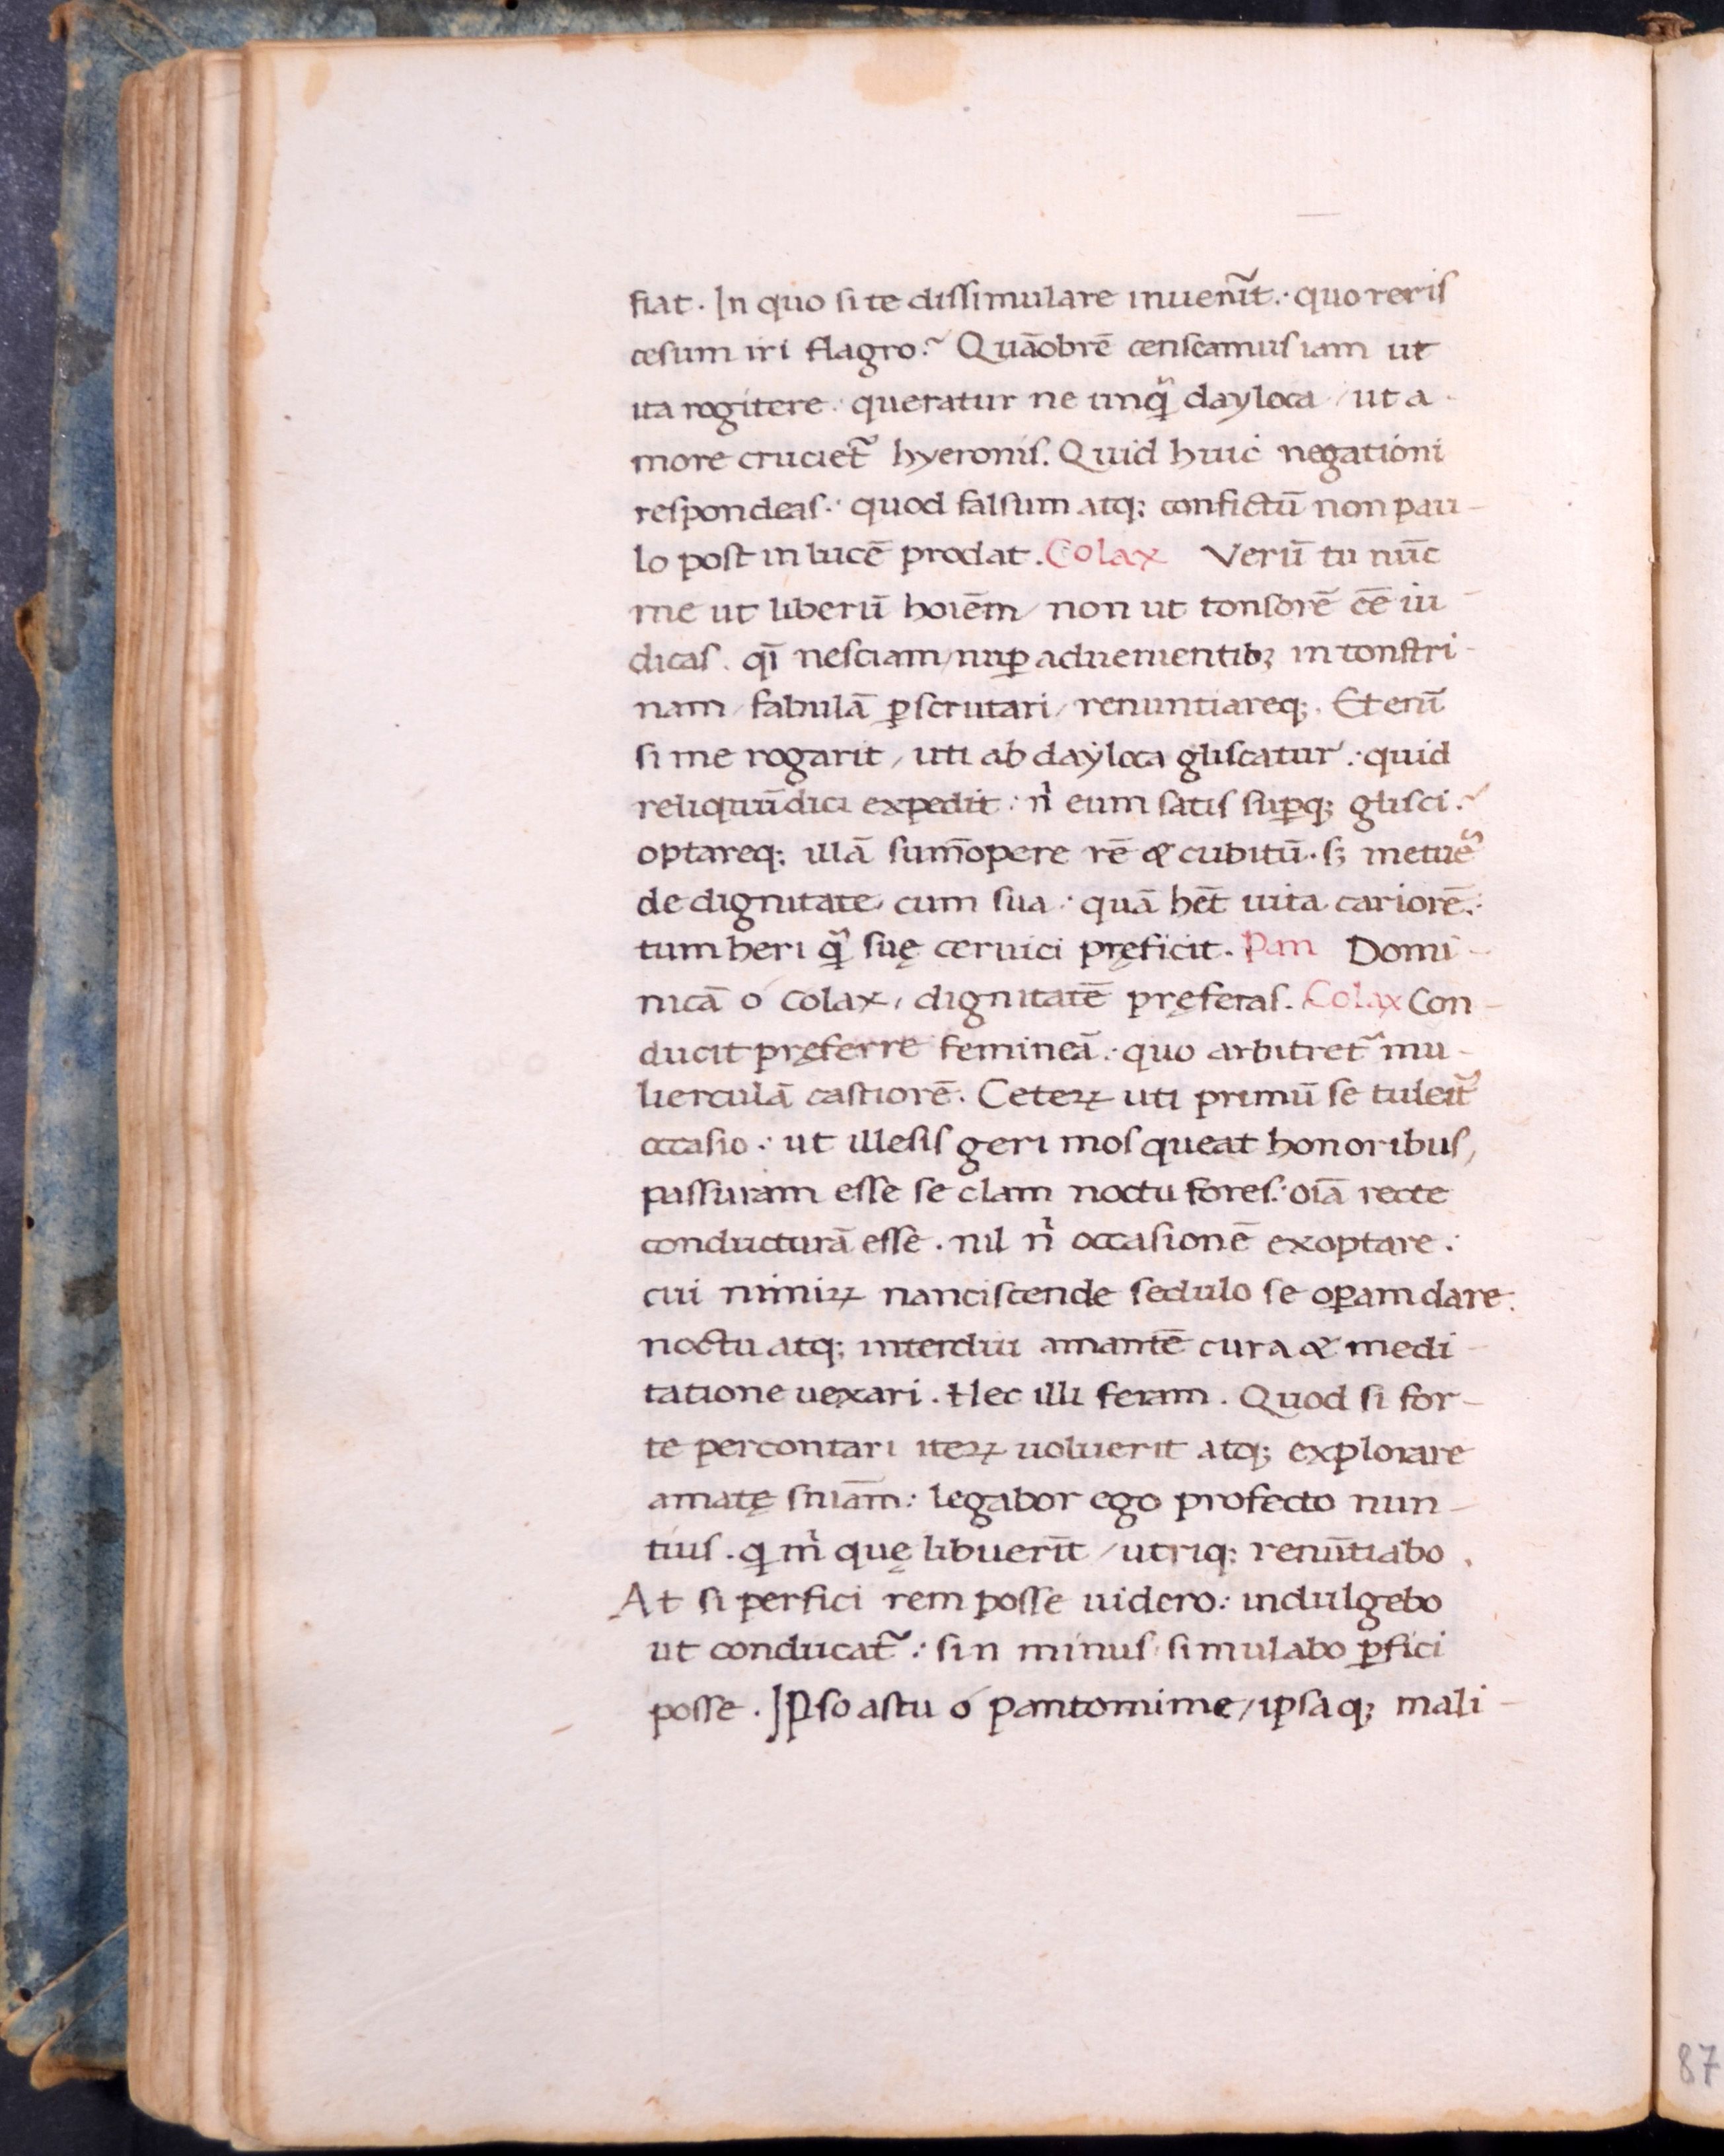 fiat. In quo si te dissimulare inuenit̃: quo reris
cesum iri flagro? Quãobrẽ censeamus iam ut
ita rogitere: queratur ne unq̃ dayloca / ut a-
more cruciet̃ hyeronis. Quid huic negationi
respondeas: quod falsum atq; confictũ non pau-
lo post in lucẽ prodat. Colax Verũ tu nũc
me ut liberũ hoiẽm / non ut tonsorẽ cẽ iu-
dicas. qĩ nesciam / nuꝑ aduenientibꝫ in tonstri-
nam / fabulã ꝑscrutari / renuntiareq;. Et enĩ
si me rogarit / uti ab daÿloca gliscatur: quid
reliquũ dici expedit: n̉ eum satis suꝑq; glisci?
optareq; illã sum̃opere rẽ & cubitũ. sꝫ metuẽ
de dignitate, cum sua: quã hẽt uita cariorẽ:
tum heri q̃ suę ceruici pręficit. Pam Domi-
nicã ó Colax, dignitatẽ pręferas. Colax Con-
ducit pręferre femineã: quo arbitret̃ mu-
lierculã castiorẽ. Ceteꝝ uti primũ se tuleit̃
occasio: ut illesis geri mos queat honoribus,
passuram esse se clam noctu fores: oĩa recte
conducturã esse. nil n̉ occasionẽ exoptare:
cui nimiꝝ nanciscende sedulo se oꝑam dare:
noctu atq; interdiu amantẽ cura & medi-
tatione uexari. Hec illi feram. Quod si for-
te percontari iteꝝ uoluerit atq; explorare
amatę sniãm: legabor ego profecto nun-
tius. q m̉ quę libuerĩt / utriq; renũtiabo.
At si perfici rem posse uidero: indulgebo
ut conducat̃: sin minus simulabo ꝑfici
posse. Ipso astu ó pantomime / ipsaq; mali-
87